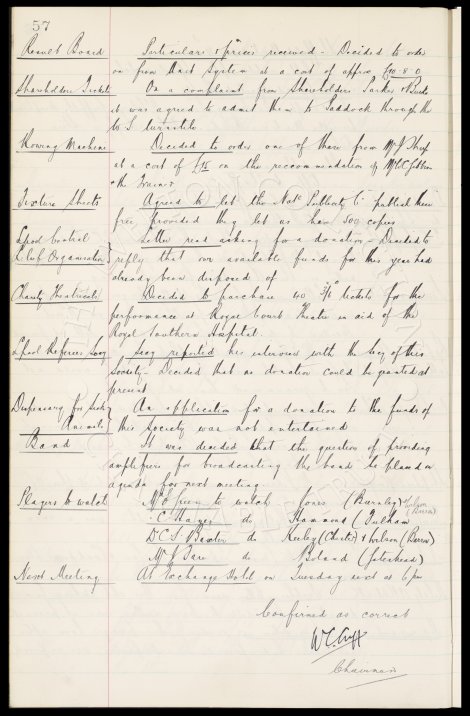 57
Result Board Particulars & prices received - Decided to order
one from Unit System at a cost of approx £40-8-0
Shareholders Tickets On a complaint from Shareholders Parker &
it was agreed to admit them to Paddock through the
W.S. turnstile.
Rowing Machine Decided to order one of these from Mr J. Sharp
at a cost of on the reccommendation of Mr W.C. Gibbins
& the Trainer.
Fixture Sheets Agreed to let the Natl. Publicity Co. publish these
free, provided they let us have 500 copies
L'pool Central Letter read asking for a donation - Decided to
Club Organisation reply that our available funds for this year had
already been disposed of
Charity Theatricals Decided to purchase 40 2/6 tickets for the
performance at Royal Court Theatre in aid of the
Royal Southern Hospital.
L'pool Referees Socy Secy reported his interview with the Secy of this
Society - Decided that no donation could be granted at
present
Dispensary for Sick An application for a donation to the funds of
Animals this Society was not entertained
Band It was decided that the question of providing
amplifiers for broadcasting the band be placed on
agenda for next meeting.
Players to watch Mr E. Green to watch Jones (Burnley) & Wilson (Barrow)
" C. Hayes do Hammond (Fulham
Dr C.S. Baxter do Keeley (Chester) & Wilson (Barrow)
Mr do Boland (Gateshead)
Next Meeting At Exchange Hotel on Tuesday next at 6 pm
Confirmed as correct
W.C. Cuff
Chairman